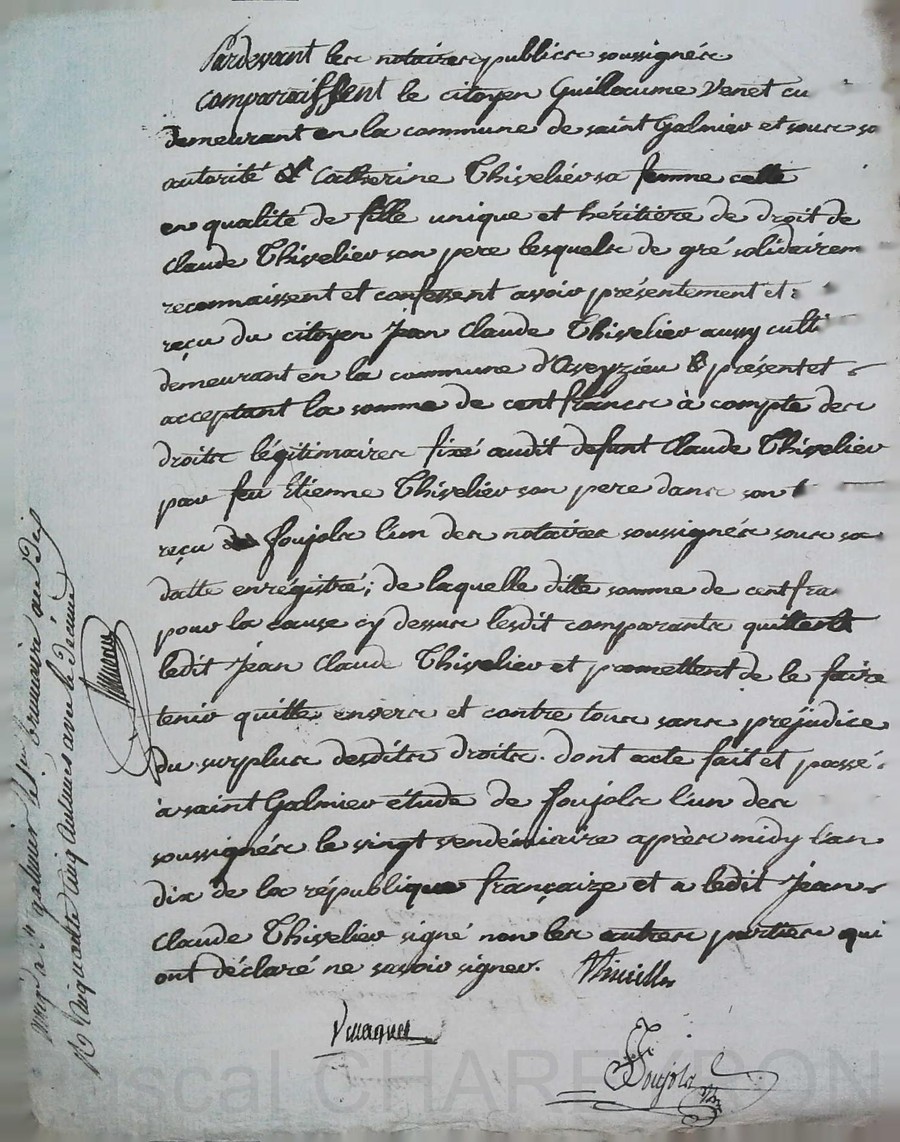 Pardevant les notaires publics soussignés
comparaissent le citoyen Guillaume Venet cu
demeurant en la commune de saint Galmier et sous so
autorité Catherine Thivelier sa femme celle
en qualité de fille unique et héritière de droit de
Claude Thivelier son pere lesquels de gré solidairem
reconnaissent et confessent avoir présentement et
reçu du citoyen Jean Claude Thivelier aussy culti
demeurant en la commune d'Aveyzieu présent et
acceptant la somme de cent francs à compte des
droits légitimaires fixé audit defunt Claude Thivelier
par feu Etienne Thivelier son pere dans son t
reçu foujols l'un des notaires soussignés sous sa
datte enrégistré; de laquelle ditte somme de cent fra
pour la cause cy dessus lesdit comparants quittent
ledit Jean Claude Thivelier et promettent de le faire
tenir quitte envers et contre tous sans prejudice
du surplus desdits droits. dont acte fait et passé
à saint Galmier étude de foujols l'un des
soussignés le vingt vendémiaire après midy l'an
dix de la république françaize et a ledit Jean
Claude Thivelier signé non les autres parties qui
ont déclaré ne savoir signer.
Foujols
à St galmier le brumaire an dix
cinq centimes avec le décime
Pascal CHAREYRON